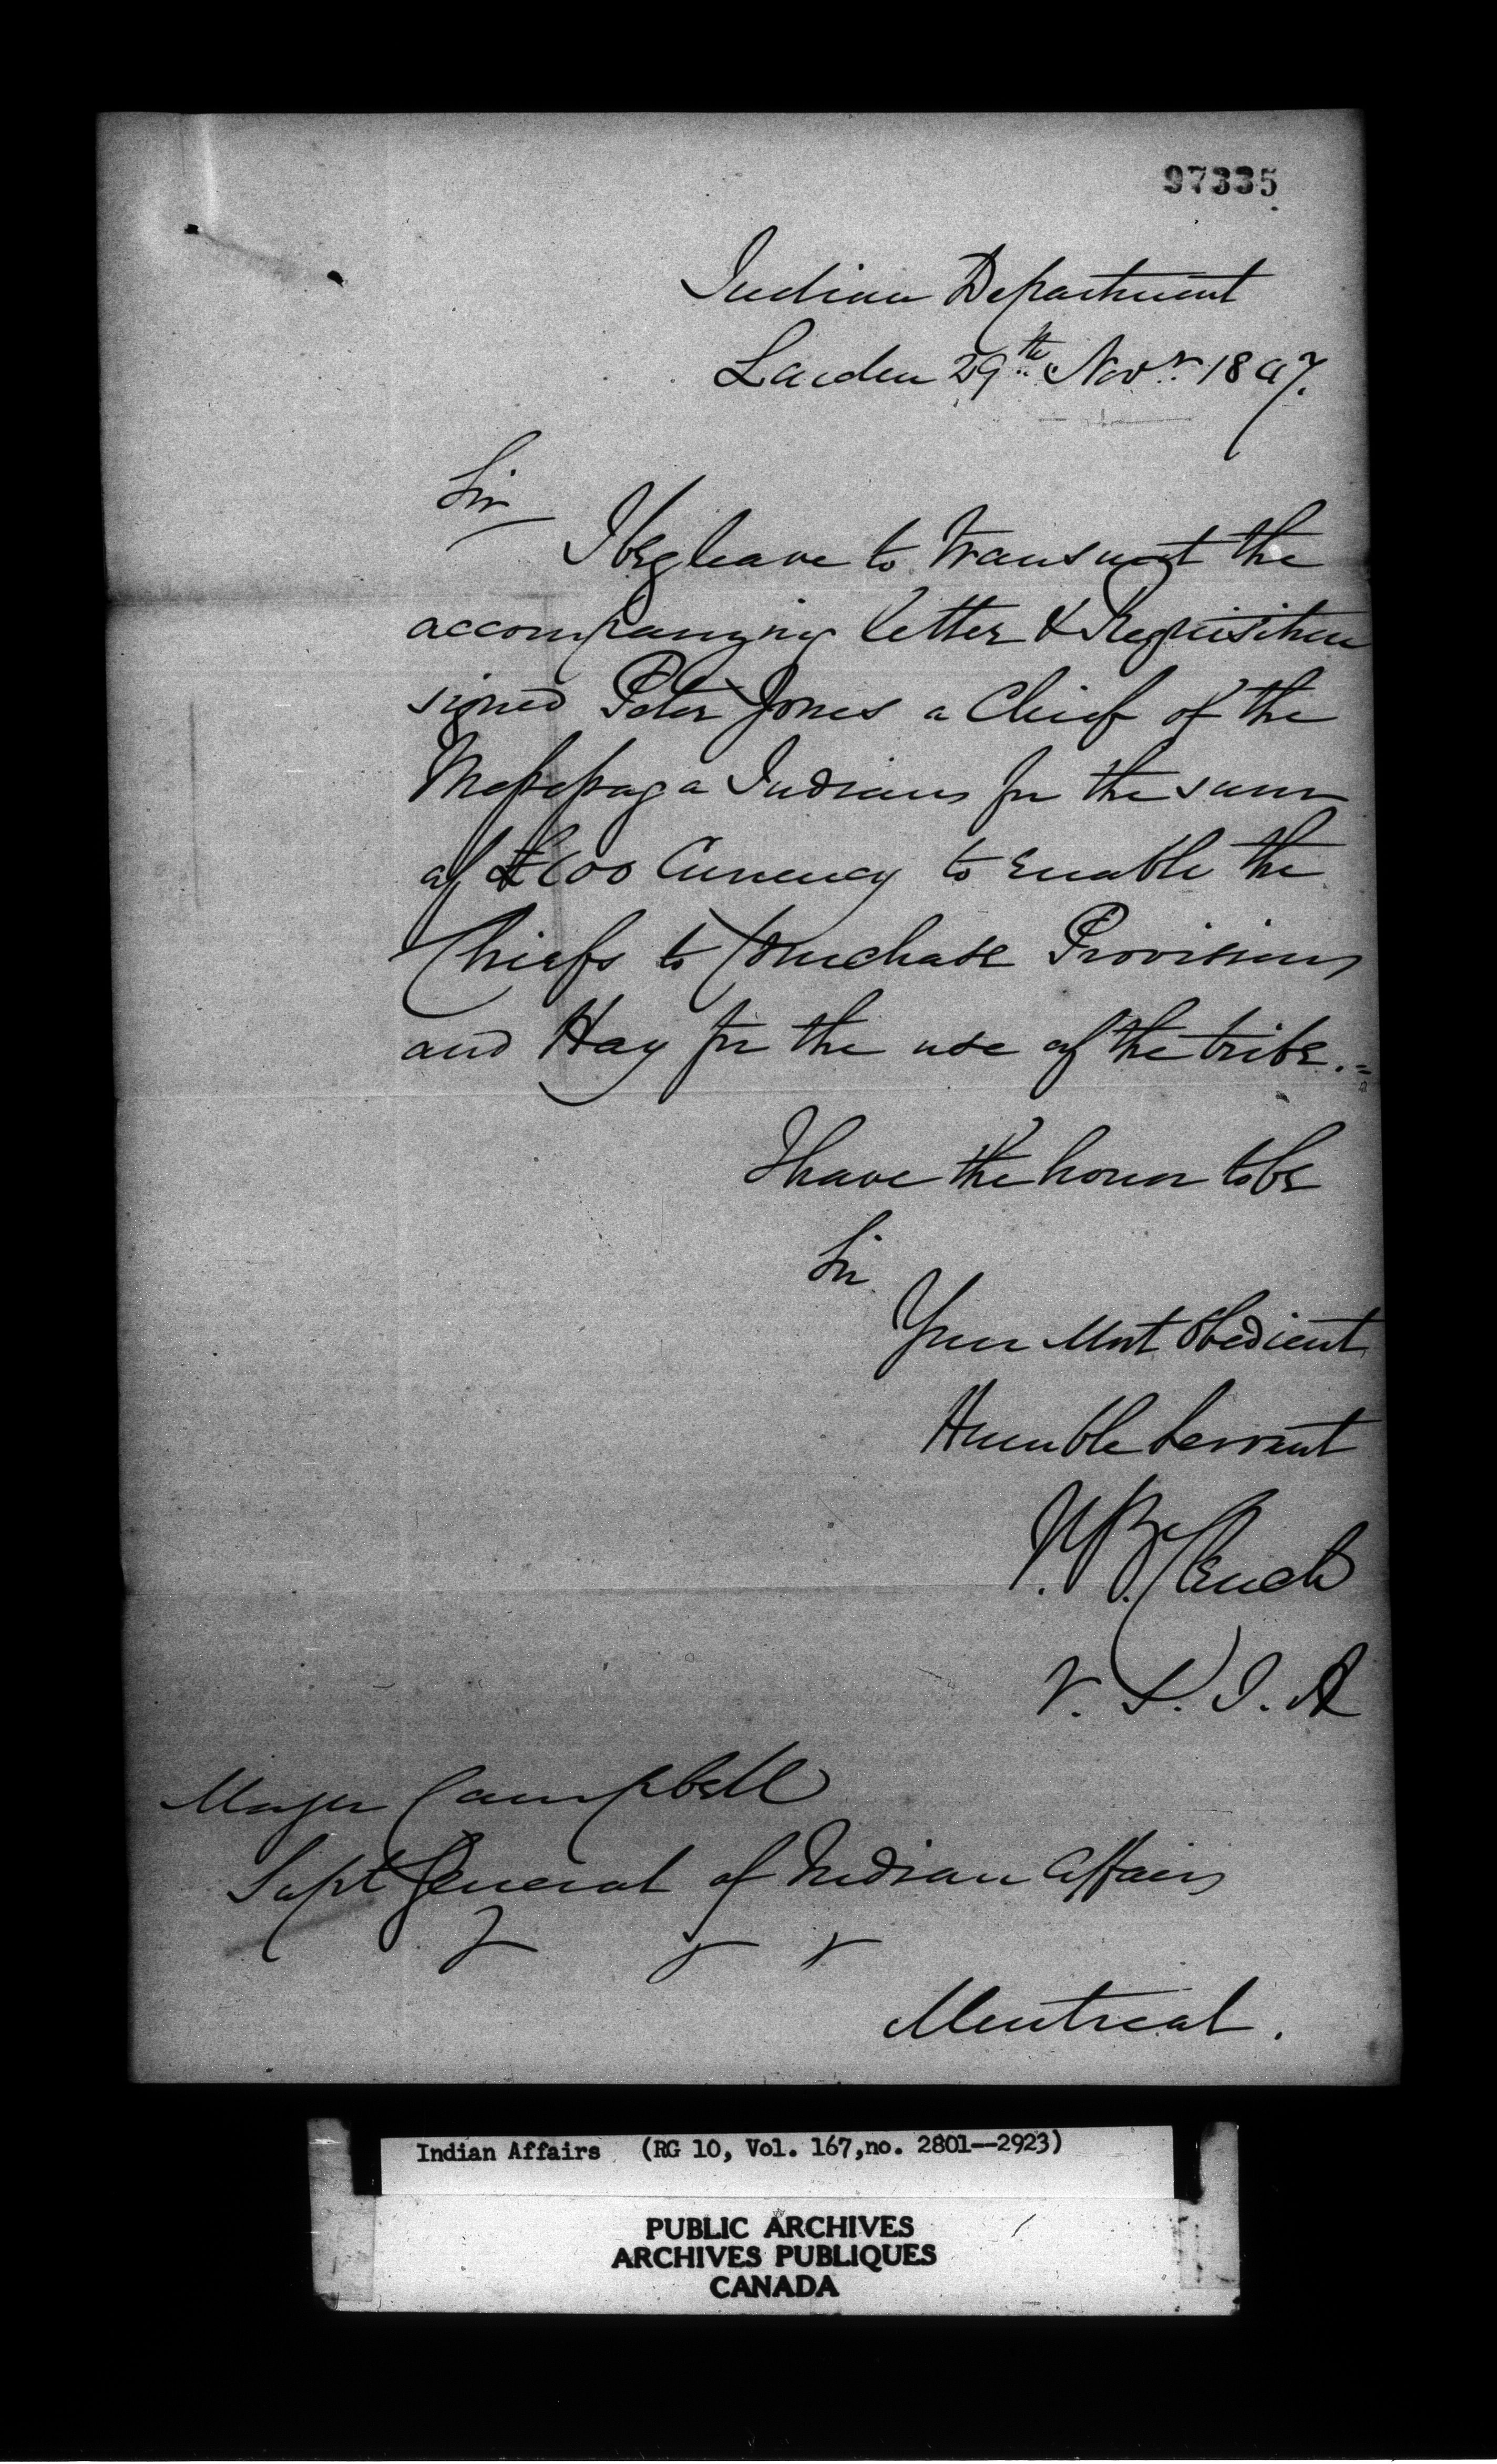 97335
Indian Department
London 29th Novr 1847.
Sir
I beg leave to transmit the
accompanying letter & Requisition
signed Peter Jones a Chief of the
Mississaga Indians for the sum
of £100 Currency to enable the
Chiefs to purchase Provisions
and Hay for the use of the tribe.=
I have the honor to be
Sir
Your Most Obedient
Humble Servant
J. B. Clench
V. S. I. A
Major Campbell
Supt General of Indian Affairs
& & &
Montreal.
Indian Affairs (RG 10, Vol. 167,no. 2801--2923)
PUBLIC ARCHIVES
ARCHIVES PUBLIQUES
CANADA